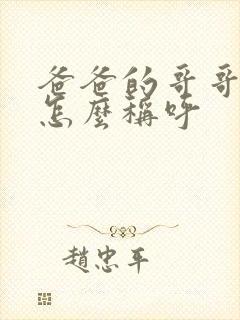 爸爸的哥哥
怎麼稱呼
趙忠平